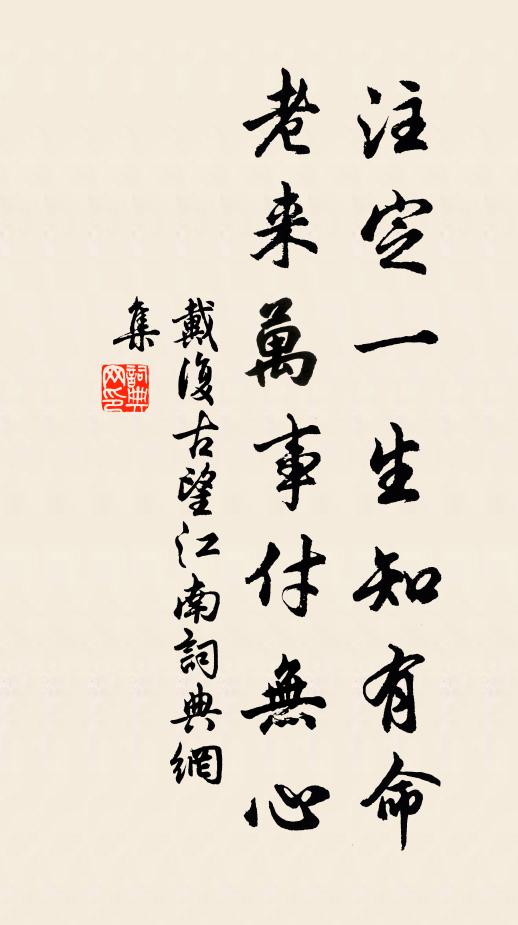 注定一生知有命
老来萬事付無心
戴復古望江南詞典網
集
詞典
网印